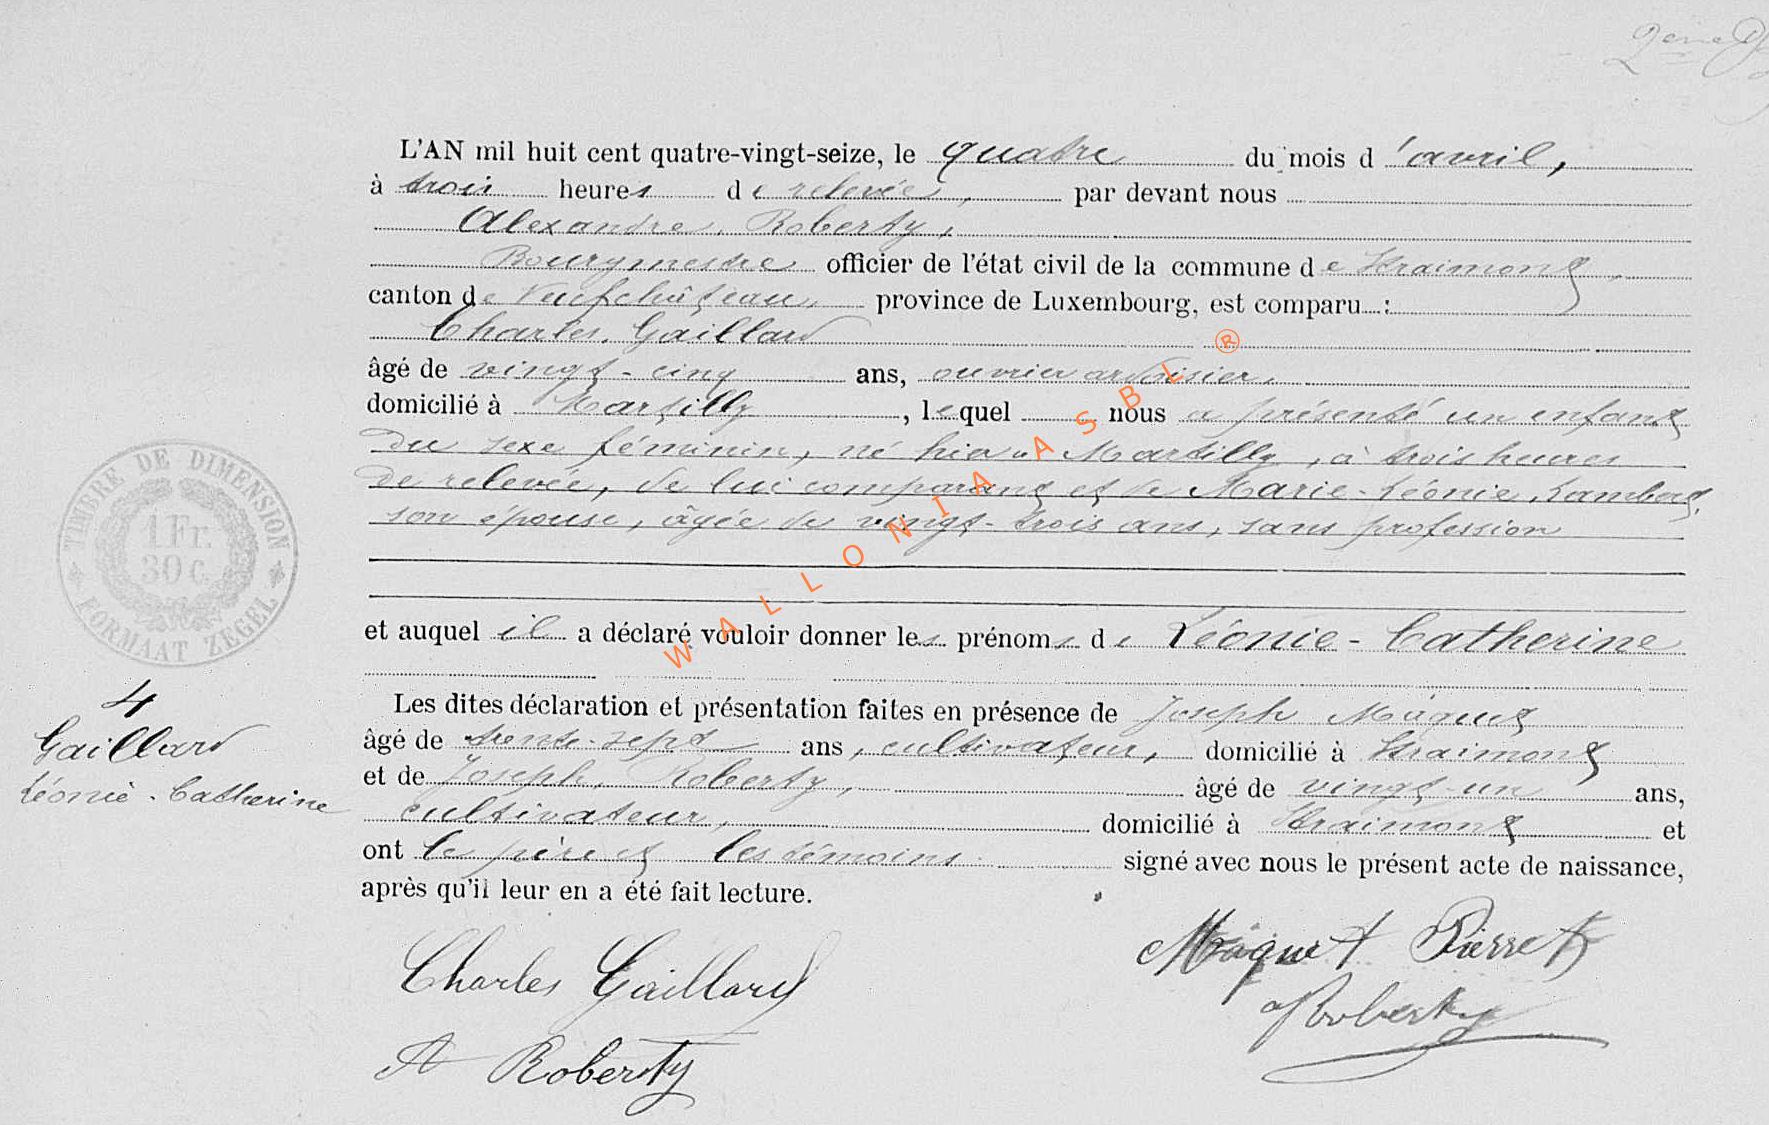 2eme
L'AN mil huit cent quatre-vingt-seize, le quatre du mois d'avril,
à trois heures de relevée, par devant nous
Alexandre, Roberty,
Bourgmestre officier de l'état civil de la commune de Straimont,
canton de Neufchâteau, province de Luxembourg, est comparu :
Charles, Gaillard
âgé de vingt-cinq ans, ouvrier ardoisier,
domicilié à Martilly, lequel nous a présenté un enfant
du sexe féminin, né hier à Martilly, à trois heures
de relevée, de lui comparant et de Marie-Léonie, Lambert,
son épouse, âgée de vingt-trois ans, sans profession
et auquel il a déclaré vouloir donner les prénoms de Léonie-Catherine
Les dites déclaration et présentation faites en présence de Joseph Maquet
âgé de trente-sept ans, cultivateur, domicilié à Straimont
et de Joseph, Roberty, âgé de vingt-un ans,
cultivateur, domicilié à Straimont et
ont le père et les témoins signé avec nous le présent acte de naissance,
après qu'il leur en a été fait lecture.
TIMBRE DE DIMENSION
1 Fr.
30 c.
FORMAAT ZEGEL
4
Gaillard
Léonie-Catherine
Charles Gaillard
Maquet Pierret
A Roberty
Roberty
WALLONIA ASBL ®